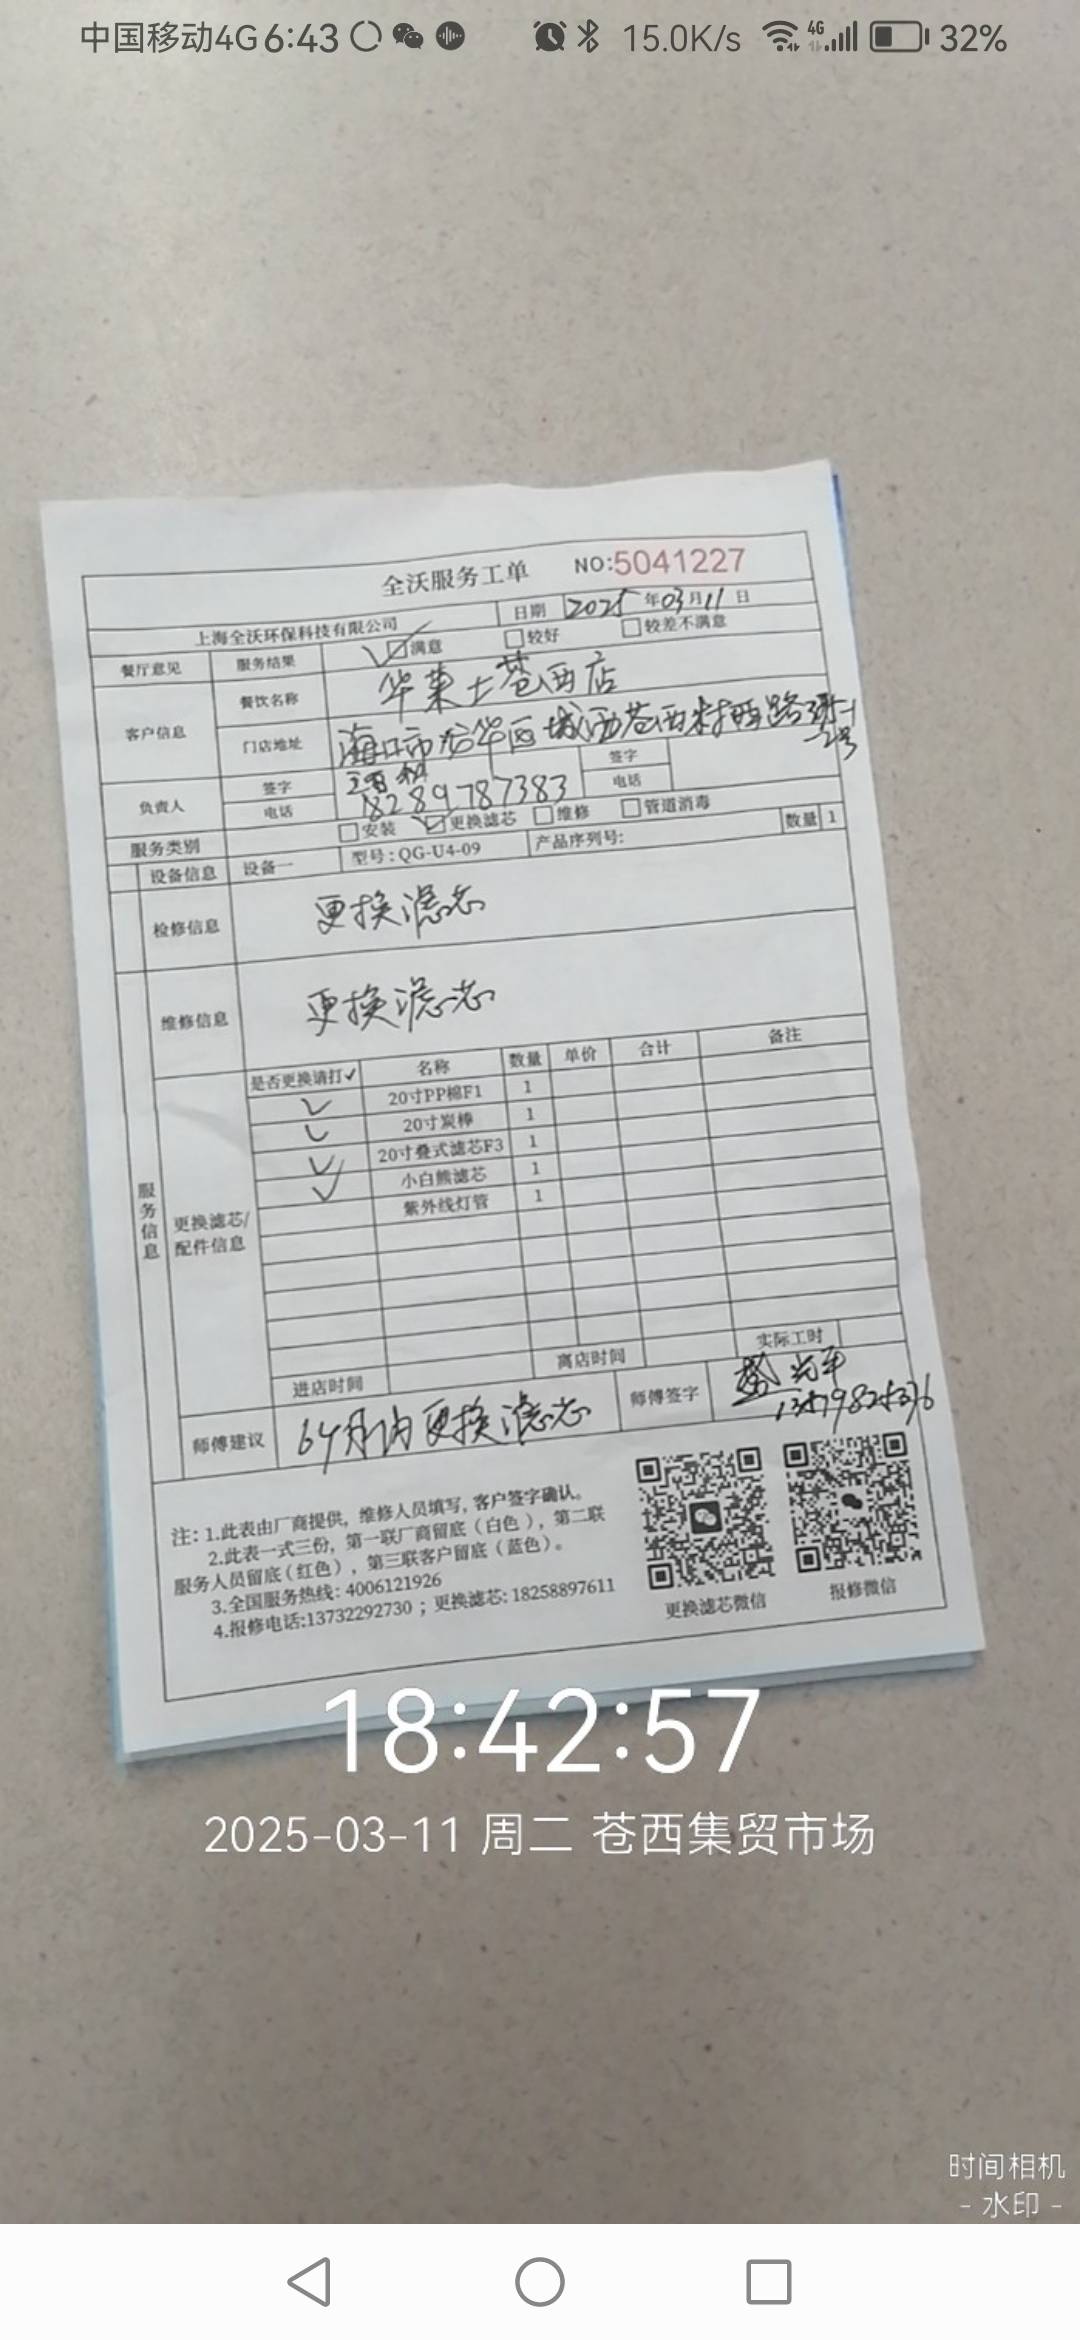 中国移动4G 6:43 15.0K/s 4G 32%
全沃服务工单 NO:5041227
上海全沃环保科技有限公司 日期 2025年03月11日
餐厅意见 服务结果 满意 较好 较差不满意
客户信息 餐饮名称 华莱士苍西店
门店地址 海口市龙华区城西苍西村
负责人 签字 签字
电话 18289787383 电话
服务类别 安装 更换滤芯 维修 管道消毒
设备信息 设备一 型号:QG-U4-09 产品序列号: 数量 1
检修信息 更换滤芯
维修信息 更换滤芯
服务信息
更换滤芯/
配件信息
是否更换请打✓ 名称 数量 单价 合计 备注
✓ 20寸PP棉F1 1
✓ 20寸炭棒 1
✓ 20寸叠式滤芯F3 1
✓ 小白熊滤芯 1
紫外线灯管 1
进店时间 离店时间 实际工时
师傅建议 6个月内更换滤芯 师傅签字
注: 1.此表由厂商提供, 维修人员填写, 客户签字确认。
2.此表一式三份, 第一联厂商留底(白色), 第二联
服务人员留底(红色), 第三联客户留底(蓝色)。
3.全国服务热线: 4006121926
4.报修电话:13732292730 ; 更换滤芯: 18258897611
更换滤芯微信 报修微信
18:42:57
2025-03-11 周二 苍西集贸市场
时间相机
- 水印 -